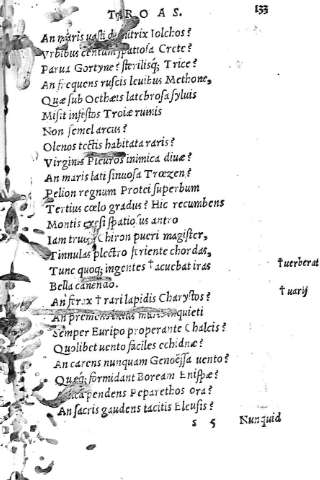 TROAS. 133
An maris uasti domitrix Iolchos?
Vrbibus centum spatiosa Crete?
Parua Gortyne? sterilisq; Trice?
An frequens ruscis leuibus Methone,
Quæ sub Oetheis latebrosa syluis
Misit infestos Troiæ ruinis
Non semel arcus?
Olenos tectis habitata raris?
Virginis Pleuros inimica diuæ?
An maris lati sinuosa Trœzen?
Pelion regnum Protei superbum
Tertius cœlo gradus? Hic recumbens
Montis exesi spatiosus antro
Iam trucis Chiron pueri magister,
Tinnulas plectro feriente chordas,
Tunc quoq; ingentes †acuebat iras †uerberat
Bella canendo.
An ferax † rari lapidis Charystos? †uarij
An premens maris inquieti
Semper Euripo properante Chalcis?
Quolibet uento faciles echidnæ?
An carens nunquam Genoëssa uento?
Quæq; formidant Boream Enispæ?
pendens Peparethos ora?
An sacris gaudens tacitis Eleusis?
s 5 Nunquid